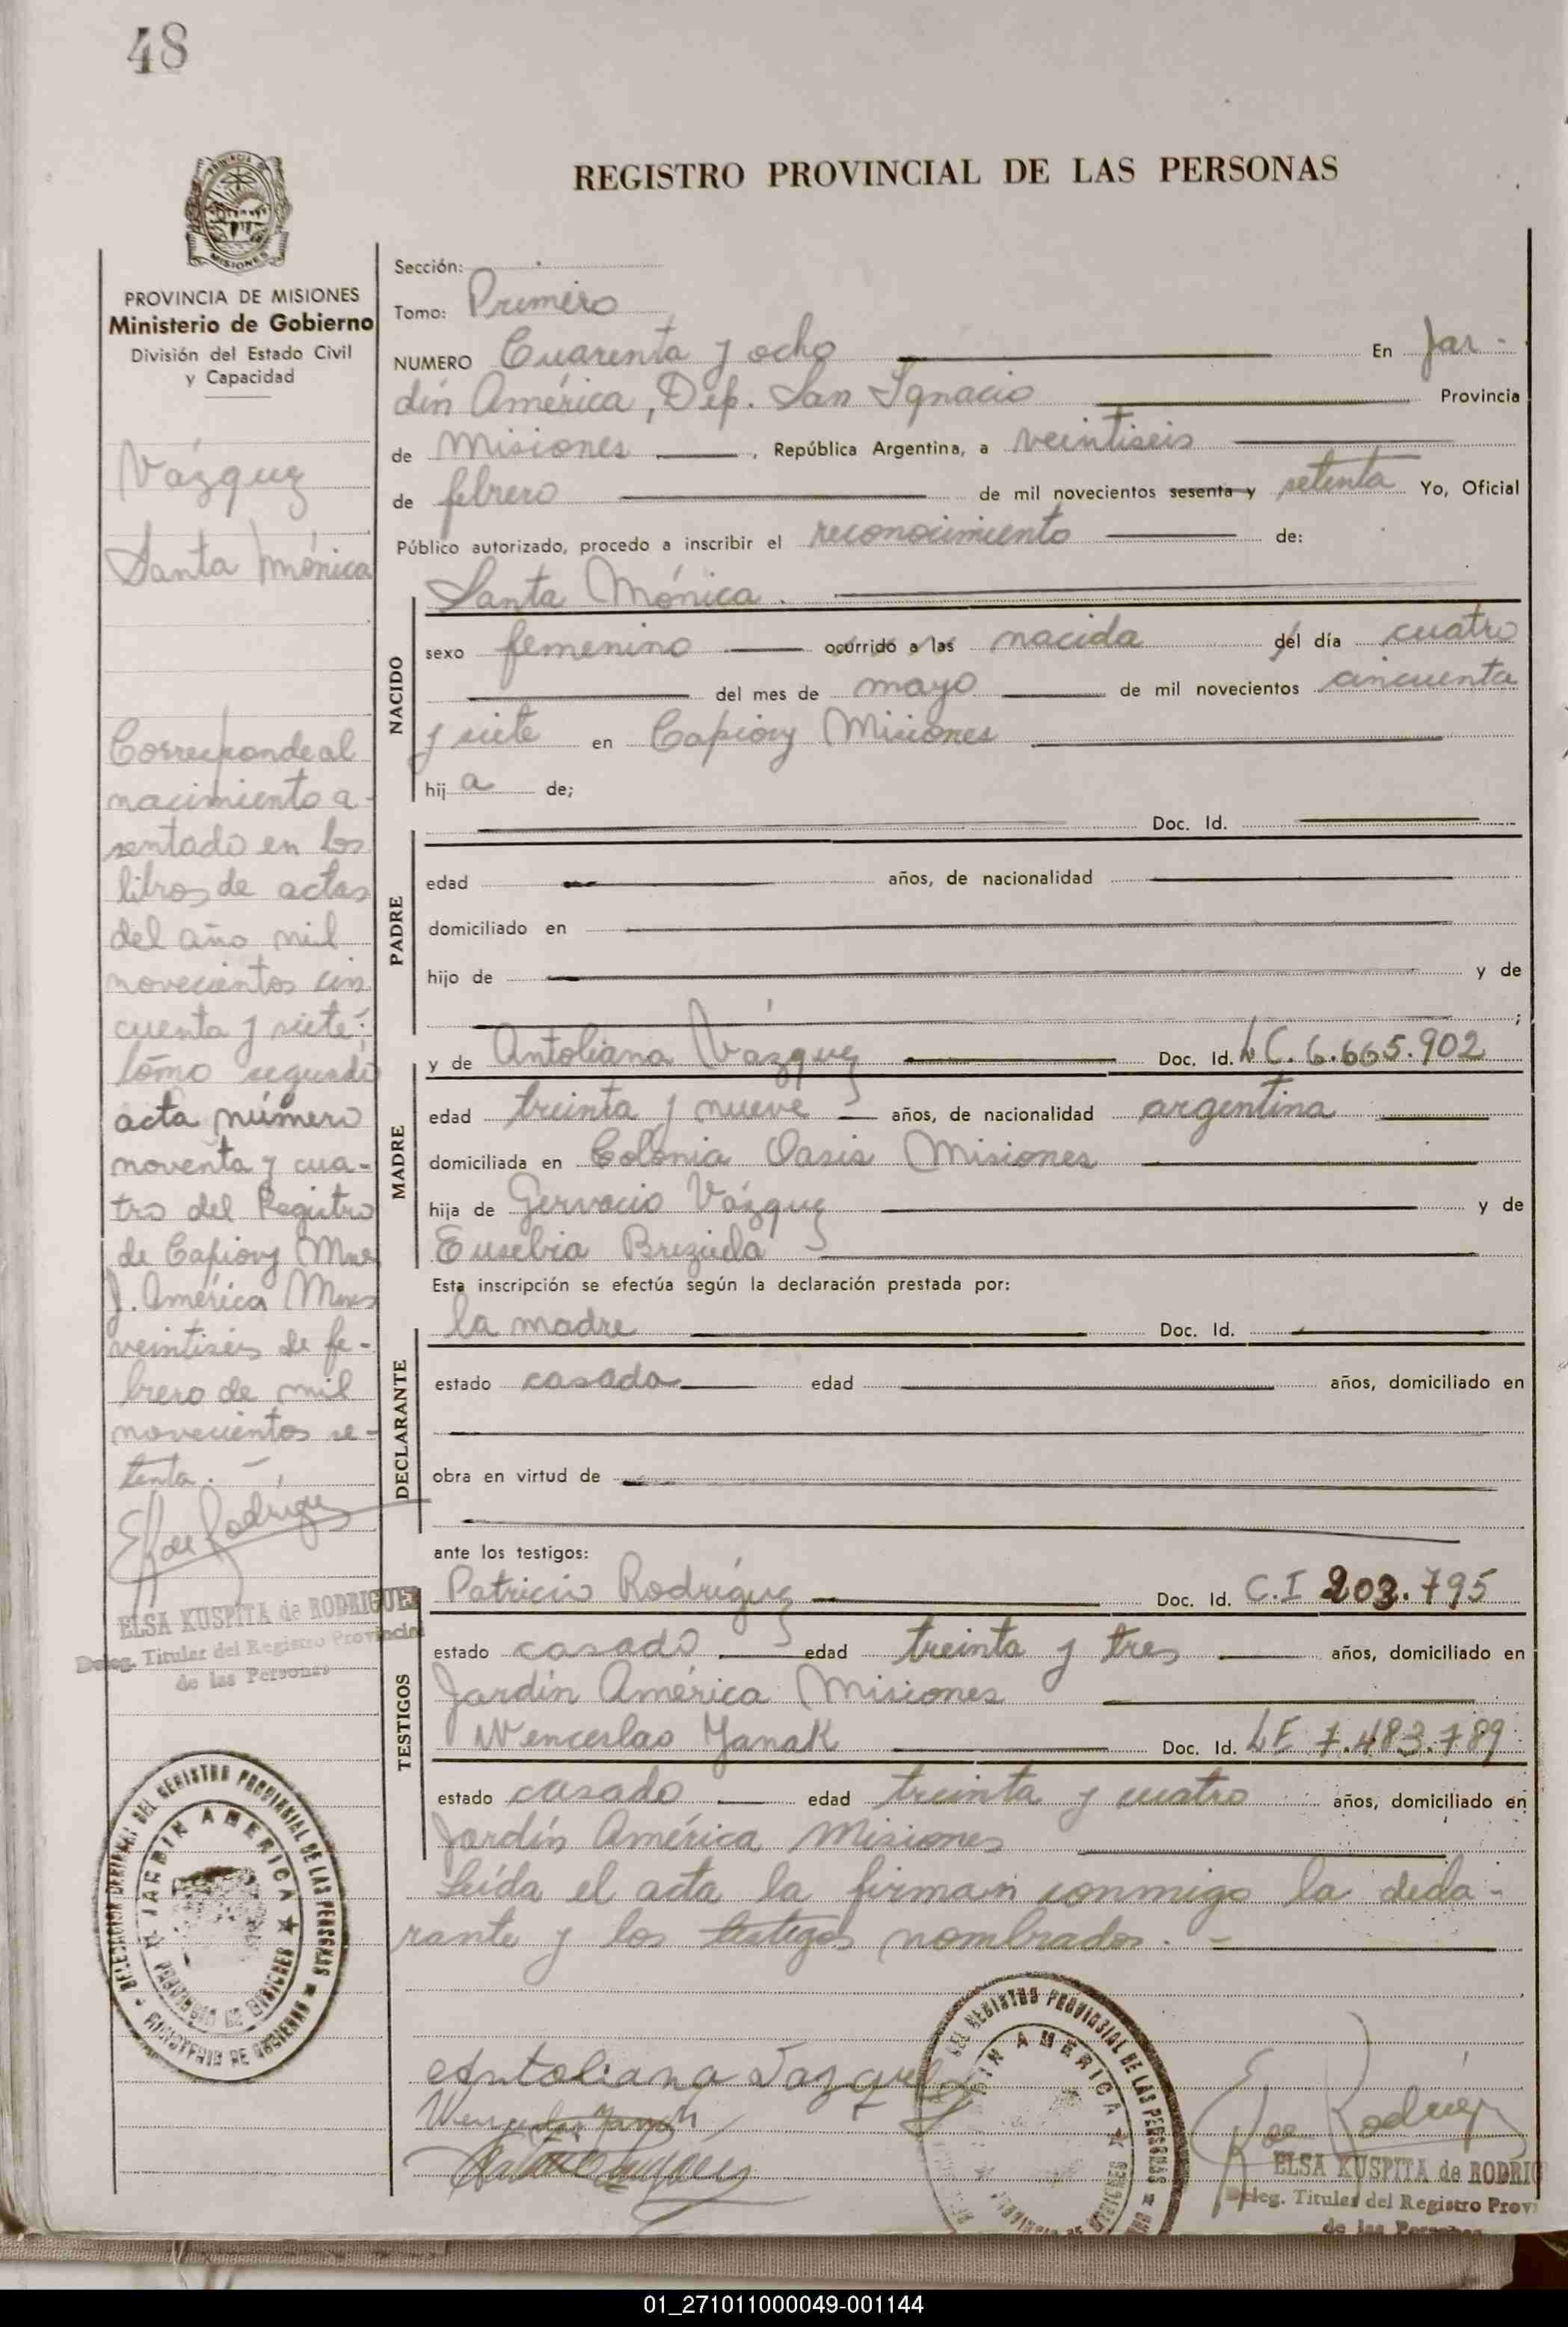 48
REGISTRO PROVINCIAL DE LAS PERSONAS
MISIONES
PROVINCIA DE MISIONES
Ministerio de Gobierno
División del Estado Civil
y Capacidad
Vázquez
Santa Mónica
Corresponde al
nacimiento a-
sentado en los
libros de actas
del año mil
novecientos cin
cuenta y siete:
tomo segundo
acta número
noventa y cua-
tro del Registro
de Capiovy Mnes
J. América Mnes
veintiseis de fe-
brero de mil
novecientos se-
tenta.
E K de Rodríguez
ELSA KUSPITA de RODRIGUEZ
Deleg. Titular del Registro Provincial
de las Personas
JARDIN AMERICA
Sección:
Tomo: Primero
NUMERO Cuarenta y ocho En Jar-
dín América, Dep. San Ignacio Provincia
de Misiones, República Argentina, a veintiseis
de febrero de mil novecientos sesenta y setenta Yo, Oficial
Público autorizado, procedo a inscribir el reconocimiento de:
Santa Mónica.
NACIDO
sexo femenino ocurrido a las nacida del día cuatro
del mes de mayo de mil novecientos cincuenta
y siete en Capiovy Misiones
hij a de;
PADRE
Doc. Id.
edad años, de nacionalidad
domiciliado en
hijo de y de
;
MADRE
y de Antoliana Vázquez Doc. Id. LC. 6.665.902
edad treinta y nueve años, de nacionalidad argentina
domiciliada en Colonia Oasis Misiones
hija de Gervacio Vázquez y de
Eusebia Brizuela
Esta inscripción se efectúa según la declaración prestada por:
DECLARANTE
la madre Doc. Id.
estado casada edad años, domiciliado en
obra en virtud de
ante los testigos:
TESTIGOS
Patricio Rodríguez Doc. Id. C.I 203.795
estado casado edad treinta y tres años, domiciliado en
Jardín América Misiones
Wenceslao Yanak Doc. Id. LE 7.483.789
estado casado edad treinta y cuatro años, domiciliado en
Jardín América Misiones
Leída el acta la firman conmigo la decla-
rante y los testigos nombrados.
Antoliana Vazquez
JARDIN AMERICA
E K de Rodríguez
ELSA KUSPITA de RODRIG
Deleg. Titular del Registro Provi
de las Personas
01_271011000049-001144